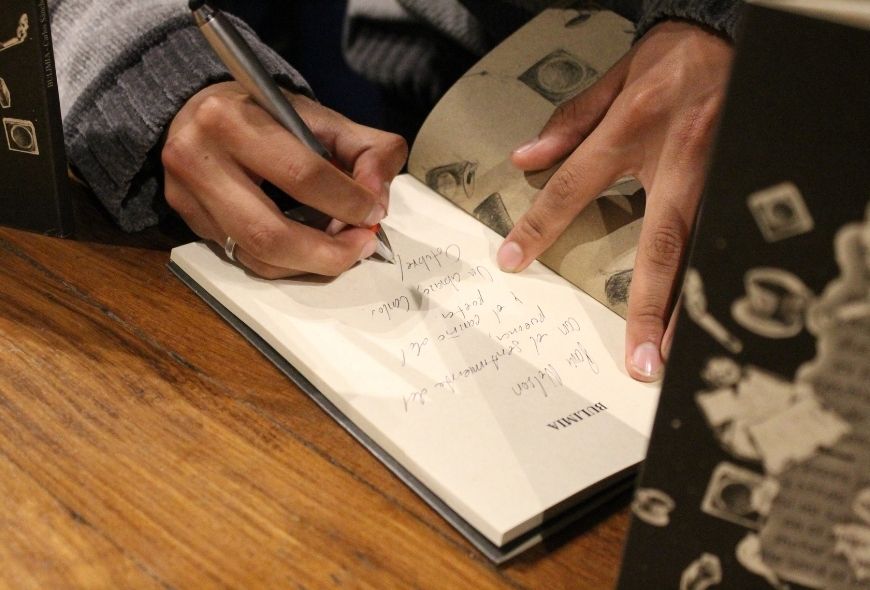 BULIMIA
Para Nelson
con el sentimiento del
poema,
y el cariño del
poeta.
Un abrazo, Carlos.
Octubre/
BULIMIA - Carlos